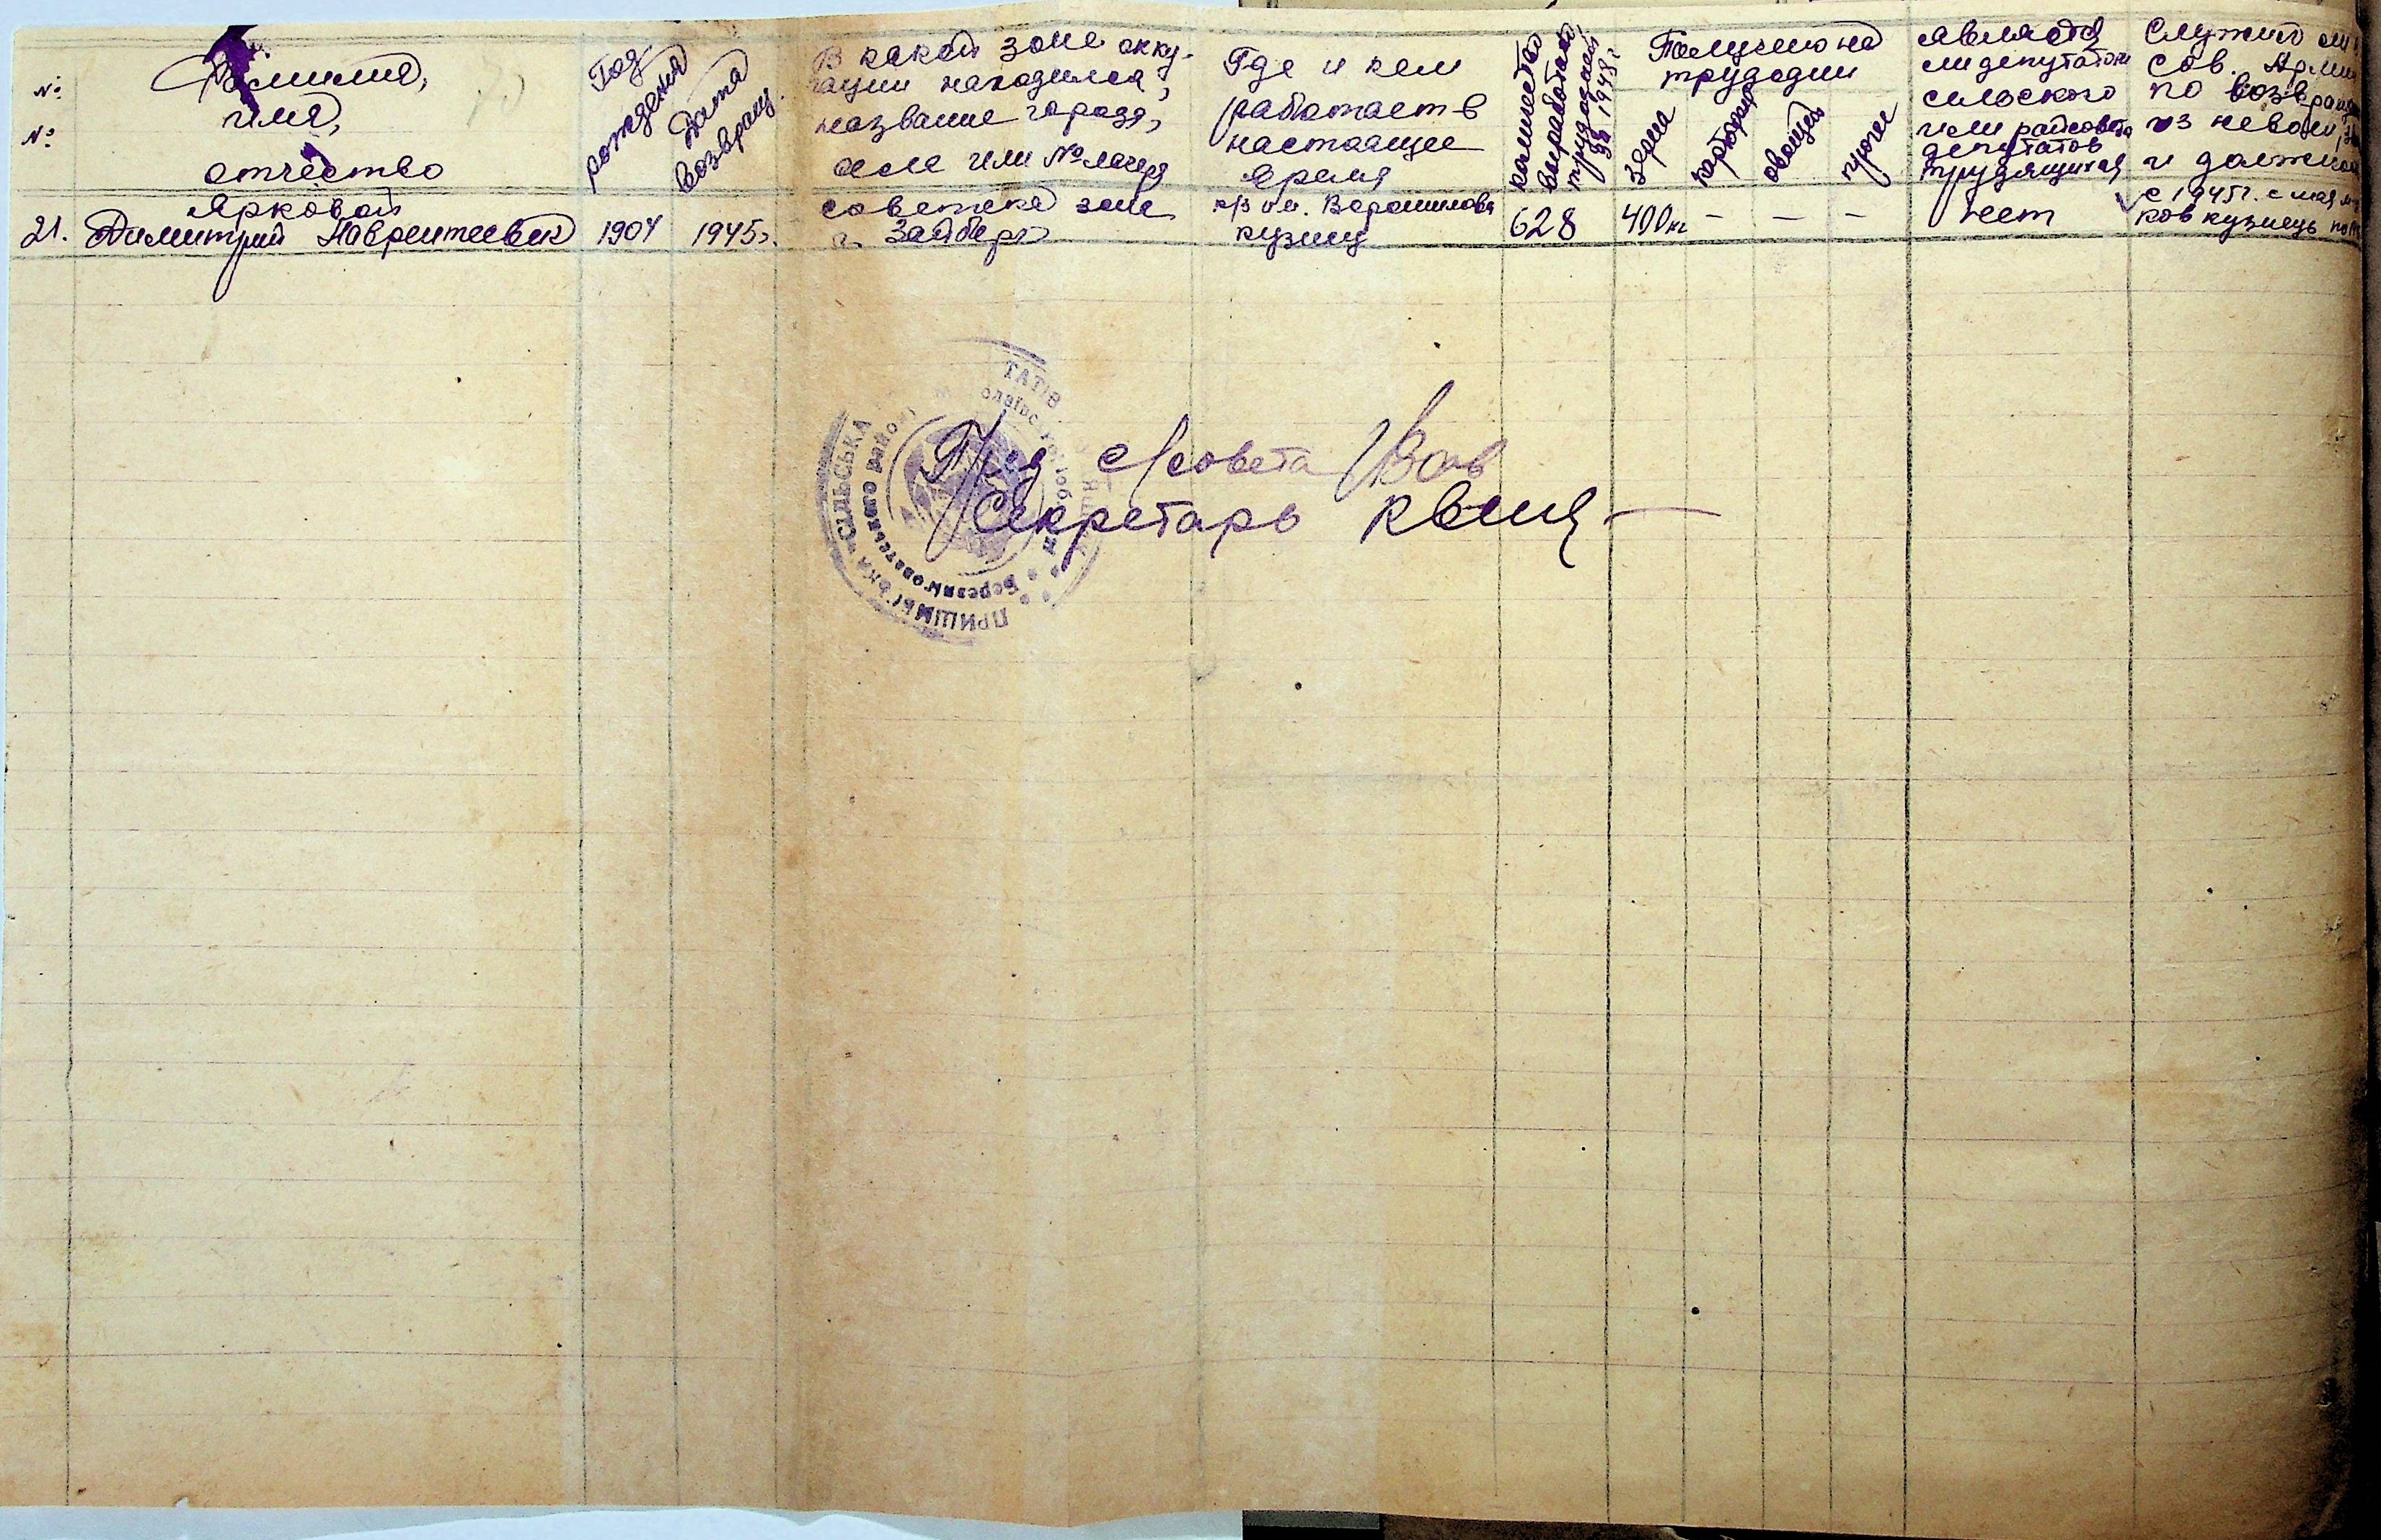 №
№
Фамилия,
имя,
отчество
Год
рождения
Дата
возвращ.
В какой зоне окку-
пации находился,
название города,
села или № лагеря
Где и кем
работает в
настоящее
время
количество
выработано
трудодней
за 1948 г.
Получено на
трудодни
зерна
картофеля
овощей
прочее
является
ли депутатом
сельского
или райсовета
депутатов
трудящихся
Служил ли
Сов. Арми
по возвращ
из неволи,
и должно
21.
Ярковой
Димитрий Лаврентеевич
1904
1945г.
советска зоне
г.
к/з им. Ворошилова
кузнец
628
400кг
–
–
–
нет
с 1945г. с мая
ков кузнець
СІЛЬСЬКА
Березнеговатського району
Пред с/совета
Секретарь